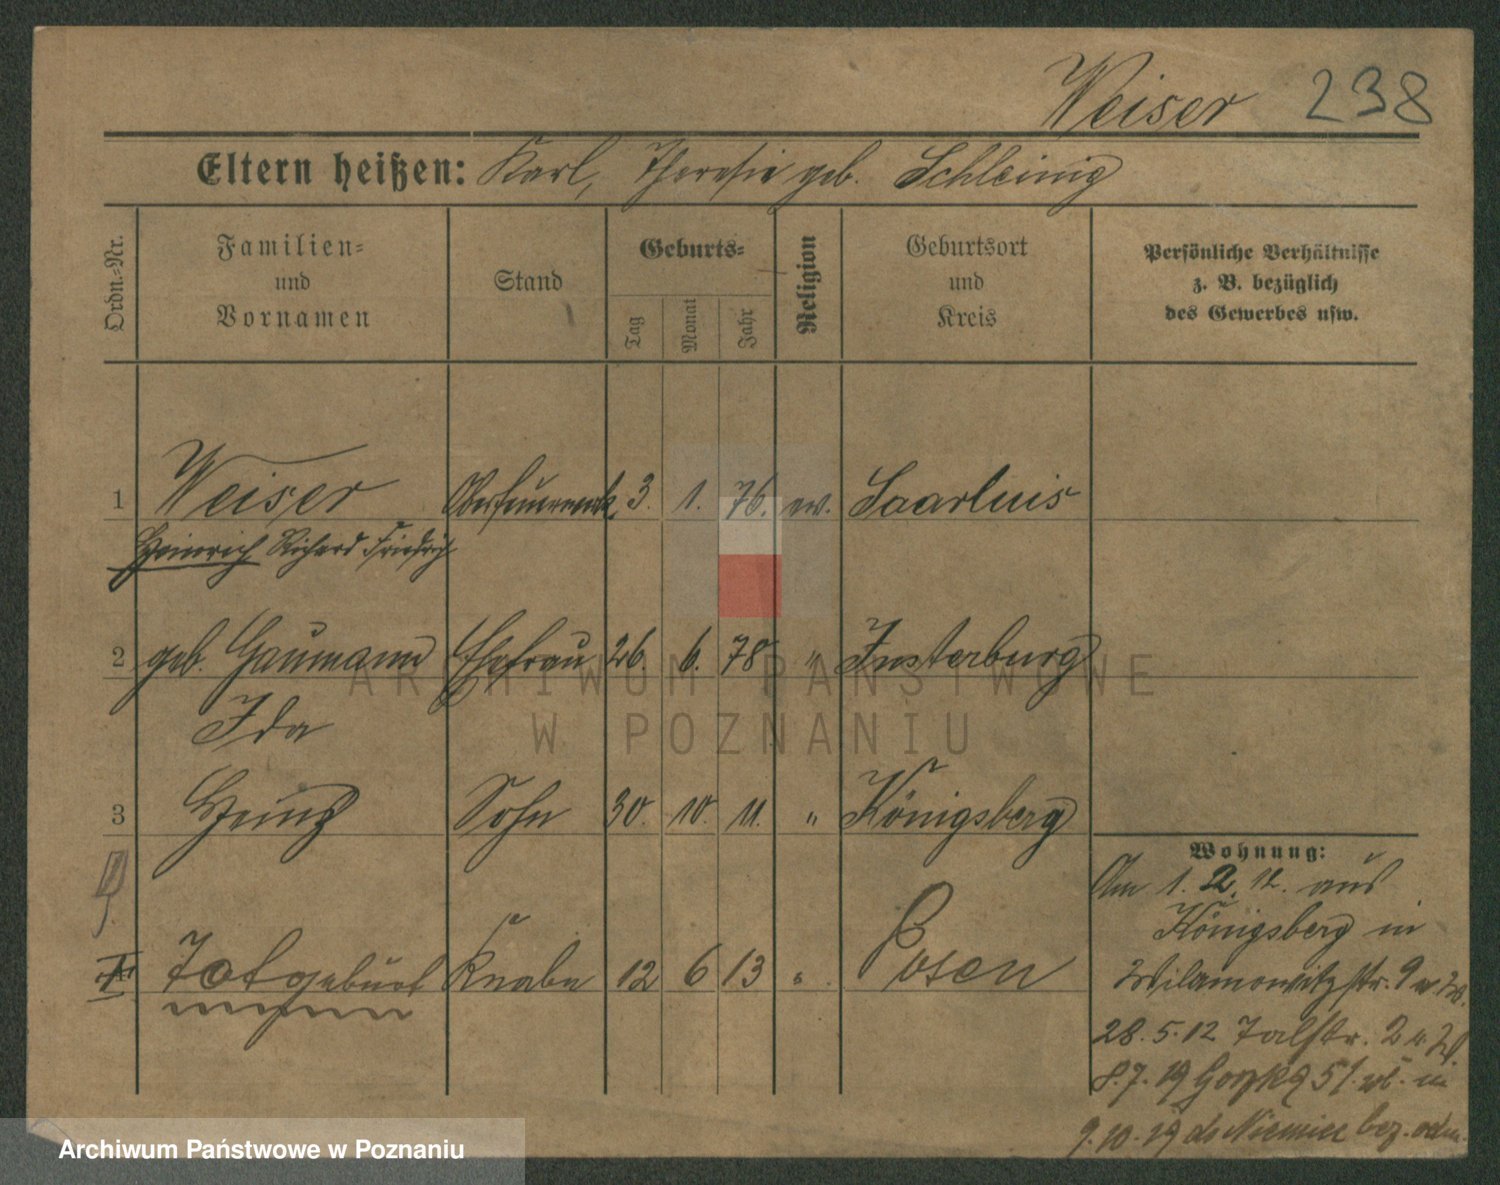 Weiser 238
Eltern heißen: Karl, Theresie geb. Schleinig
Ordn.-Nr.
Familien- und Vornamen
Stand
Geburts-
Tag
Monat
Jahr
Religion
Geburtsort und Kreis
Persönliche Verhältnisse
z. B. bezüglich
des Gewerbes usw.
1 Weiser Oberfeuerwerk. 3. 1. 76. ev. Saarluis
Heinrich Richard Friedrich
2 geb. Gaumann Ehefrau 26. 6. 78 " Insterburg
Ida
3 Heinz Sohn 30. 10. 11. " Königsberg
Totgeburt Knabe 12 6 13 " Posen
Wohnung:
Am 1. 2. 12. aus
Königsberg in
Wilamowitzstr. 9
28. 5. 12 Talstr. 2
8. 7. 19
9. 10. 19 do Niemiec bez. odm.
ARCHIWUM PAŃSTWOWE
W POZNANIU
Archiwum Państwowe w Poznaniu